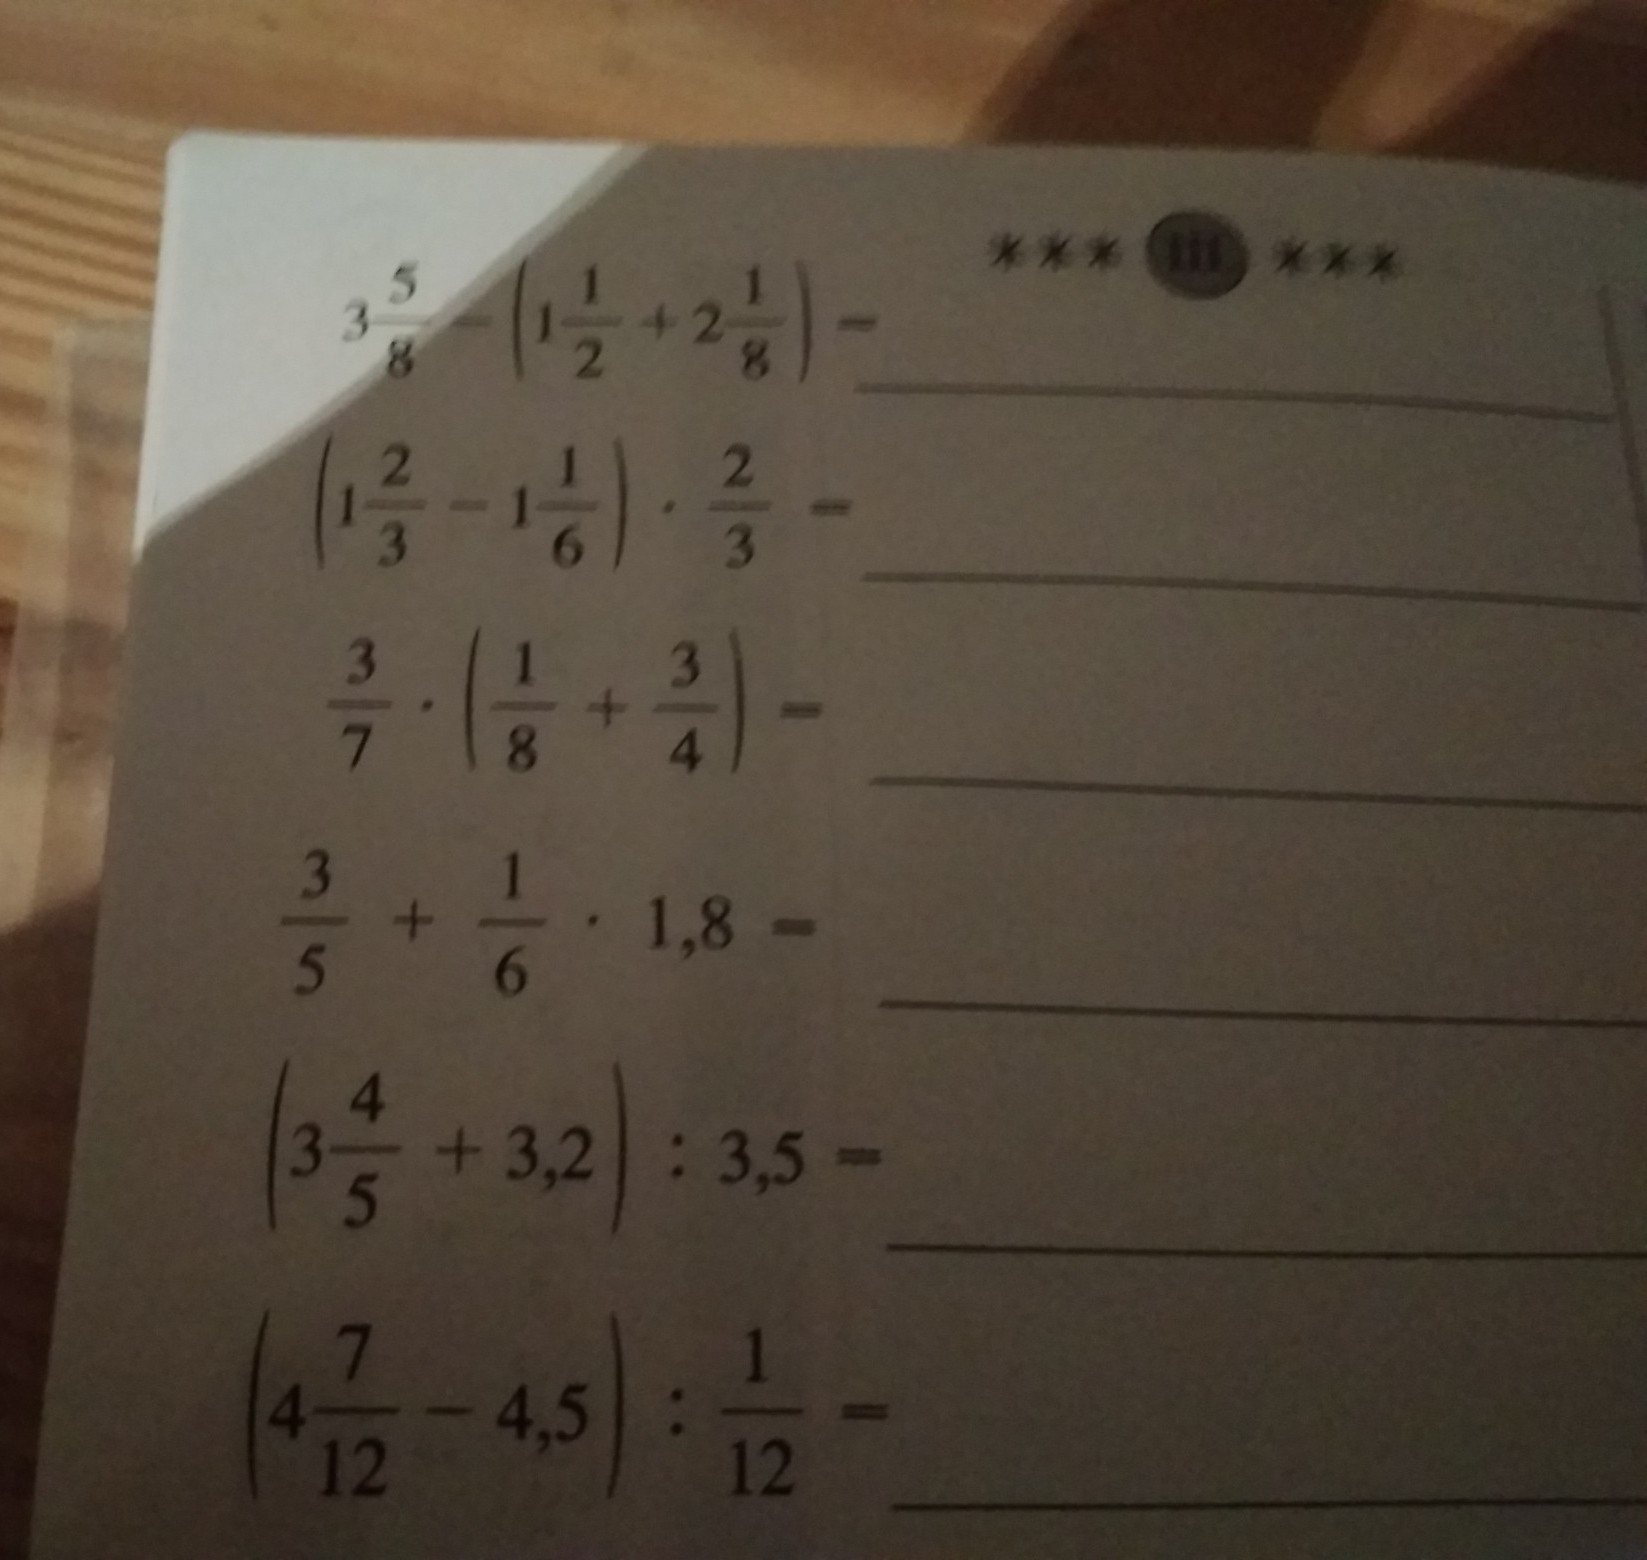 *** III ***
3 5/8 − (1 1/2 + 2 1/8) =
(1 2/3 − 1 1/6) · 2/3 =
3/7 · (1/8 + 3/4) =
3/5 + 1/6 · 1,8 =
(3 4/5 + 3,2) : 3,5 =
(4 7/12 − 4,5) : 1/12 =